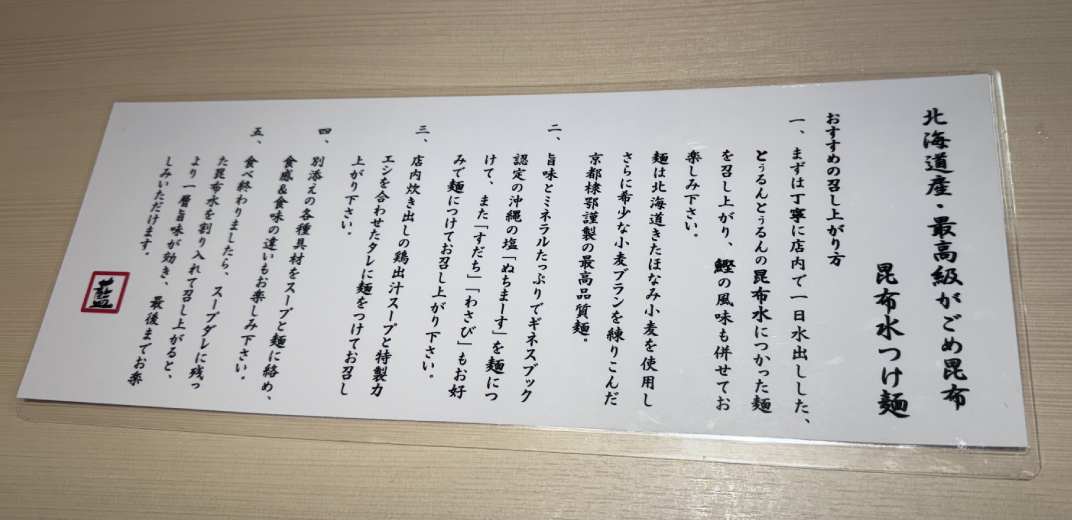 北海道産・最高級がごめ昆布
昆布水つけ麺
おすすめの召し上がり方
一、まずは丁寧に店内で一日水出しした、
とぅるんとぅるんの昆布水につかった麺
を召し上がり、鰹の風味も併せてお
楽しみ下さい。
麺は北海道きたほなみ小麦を使用し
さらに希少な小麦ブランを練りこんだ
京都棣鄂謹製の最高品質麺。
二、旨味とミネラルたっぷりでギネスブック
認定の沖縄の塩「ぬちまーす」を麺につ
けて、また「すだち」「わさび」もお好
みで麺につけてお召し上がり下さい。
三、店内炊き出しの鶏出汁スープと特製カ
エシを合わせたタレに麺をつけてお召し
上がり下さい。
四、別添えの各種具材をスープと麺に絡め、
食感&食味の違いもお楽しみ下さい。
五、食べ終わりましたら、スープダレに残っ
た昆布水を割り入れて召し上がると、
より一層旨味が効き、最後までお楽
しみいただけます。
藍